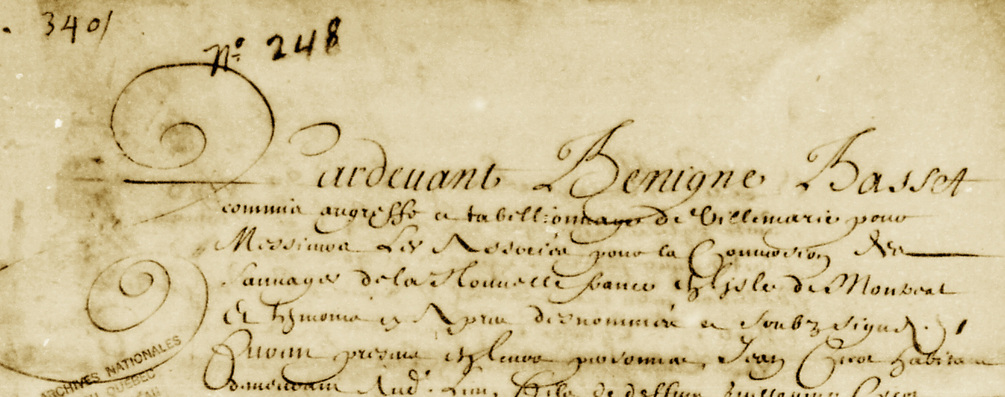 3401
N° 248
Pardevant Benigne Basset
commis au greffe et tabellionnage de Villemarie pour
Messieurs Les Associés pour la Conversion des
Sauvages de la Nouvelle france en l'isle de Monreal
Et tesmoins cy Apres desnommés et soubzsignez
Furent presens en leurs personnes, Jean Cicot habitant
demeurant Aud. Lieu, fils de deffunt Guillaume Cicot
ARCHIVES NATIONALES
QUEBEC